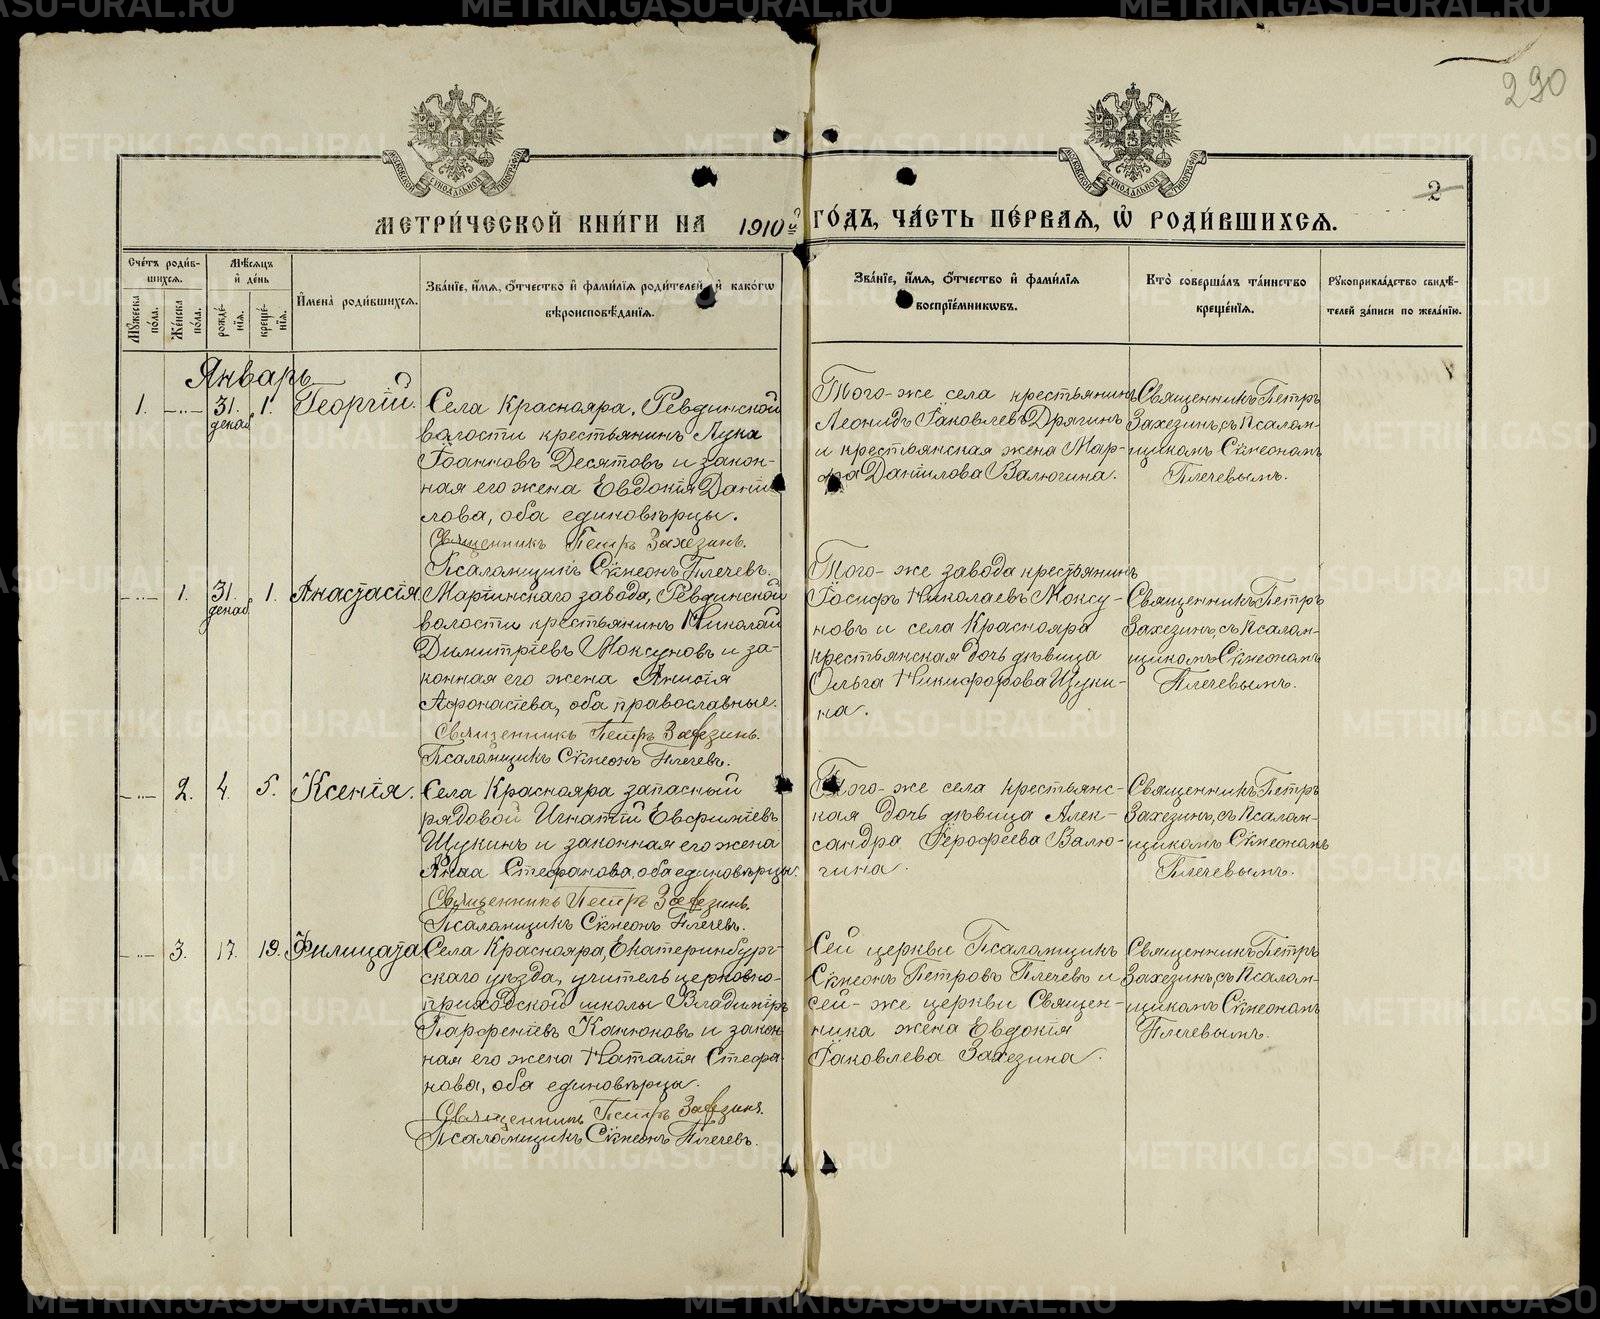 290
2
МЕТРИ́ЧЕСКОЙ КНИ́ГИ НА 1910й ГО́ДЪ, ЧА́СТЬ ПЕ́РВАЯ, Ѿ РОДИ́ВШИХСЯ.
Сче́тъ роди́в-
шихся.
Мꙋ́жеска по́ла.
Же́нска по́ла.
Мѣ́сяцъ
и҆ де́нь
рожде́-
нїя.
креще́-
нїя.
И҆мена̀ роди́вшихся.
Зва́нїе, и҆́мя, ѻ҆́тчество и҆ фами́лїя роди́телей, и҆ како́гѡ
вѣроисповѣ́данїя.
Зва́нїе, и҆́мя, ѻ҆́тчество и҆ фами́лїя
воспрїе́мникѡвъ.
Кто̀ соверша́лъ та́инство
креще́нїя.
Рꙋкоприкла́дство свидѣ́-
телей за́писи по жела́нїю.
Январь
1.
31.
декаб
1.
Георгій.
Села Краснояра, Ревдинской
волости крестьянинъ Лука
Іоанновъ Десятовъ и закон-
ная его жена Евдокія Дани-
лова, оба единовѣрцы.
Священникъ Петръ Захезинъ.
Псаломщикъ Сѵмеонъ Плечевъ.
Того-же села крестьянинъ
Леонидъ Іаковлевъ Дрягинъ
и крестьянская жена Мар-
ѳа Даніилова Валюгина.
Священникъ Петръ
Захезинъ, съ псалом-
щикомъ Сѵмеономъ
Плечевымъ.
1.
31.
декаб
1.
Анастасія
Маріинскаго завода, Ревдинской
волости крестьянинъ Николай
Димитріевъ Моксуновъ и за-
конная его жена Анисія
Афонасіева, оба православные.
Священникъ Петръ Захезинъ.
Псаломщикъ Сѵмеонъ Плечевъ.
Того-же завода крестьянинъ
Іосифъ Николаевъ Моксу-
новъ и села Краснояра
крестьянская дочь дѣвица
Ольга Никифорова Щуки-
на.
Священникъ Петръ
Захезинъ, съ псалом-
щикомъ Сѵмеономъ
Плечевымъ.
2.
4.
5.
Ксенія.
Села Краснояра запасный
рядовой Игнатій Евфиміевъ
Щукинъ и законная его жена
Анна Стефанова, оба единовѣрцы.
Священникъ Петръ Захезинъ.
Псаломщикъ Сѵмеонъ Плечевъ.
Того-же села крестьянс-
кая дочь дѣвица Алек-
сандра Іерофеева Валю-
гина.
Священникъ Петръ
Захезинъ, съ псалом-
щикомъ Сѵмеономъ
Плечевымъ.
3.
17.
19.
Филицата
Села Краснояра, Екатеринбург-
скаго уѣзда, учитель церковно-
приходской школы Владиміръ
Парфеніевъ Канюковъ и закон-
ная его жена Наталія Стефа-
нова, оба единовѣрцы.
Священникъ Петръ Захезинъ.
Псаломщикъ Сѵмеонъ Плечевъ.
Сей церкви Псаломщикъ
Сѵмеонъ Петровъ Плечевъ и
сей-же церкви Священ-
ника жена Евдокія
Іаковлева Захезина.
Священникъ Петръ
Захезинъ, съ псалом-
щикомъ Сѵмеономъ
Плечевымъ.
METRIKI.GASO-URAL.RU